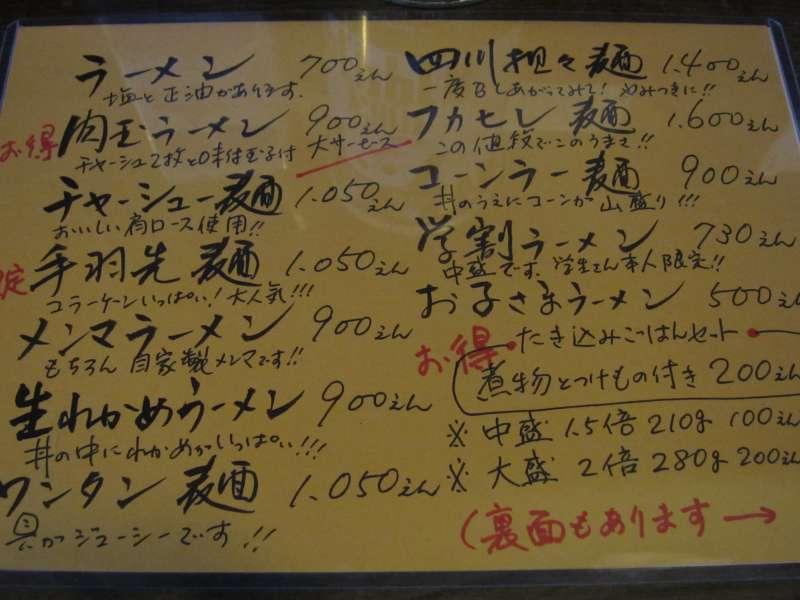 ラーメン 700えん
塩と正油があります.
お得 肉玉ラーメン 900えん
チャーシュー2枚と味付玉子付 大サービス
チャーシュー麺 1.050えん
おいしい肩ロース使用!!
定 手羽先麺 1.050えん
コラーゲンいっぱい!大人気!!!
メンマラーメン 900えん
もちろん自家製メンマです!!
生わかめラーメン 900えん
丼の中にわかめがいっぱい!!!
ワンタン麺 1.050えん
具がジューシーです!!
四川担々麺 1.400えん
一度召しあがってみて! やみつきに!!
フカヒレ麺 1.600えん
この値段でこのうまさ!!
コーンラー麺 900えん
丼のうえにコーンが山盛り!!!
学割ラーメン 730えん
中盛です. 学生さん本人限定!!
お子さまラーメン 500えん
お得 たき込みごはんセット
煮物とつけもの付き 200えん
※ 中盛 1.5倍 210g 100えん
※ 大盛 2倍 280g 200えん
(裏面もあります→